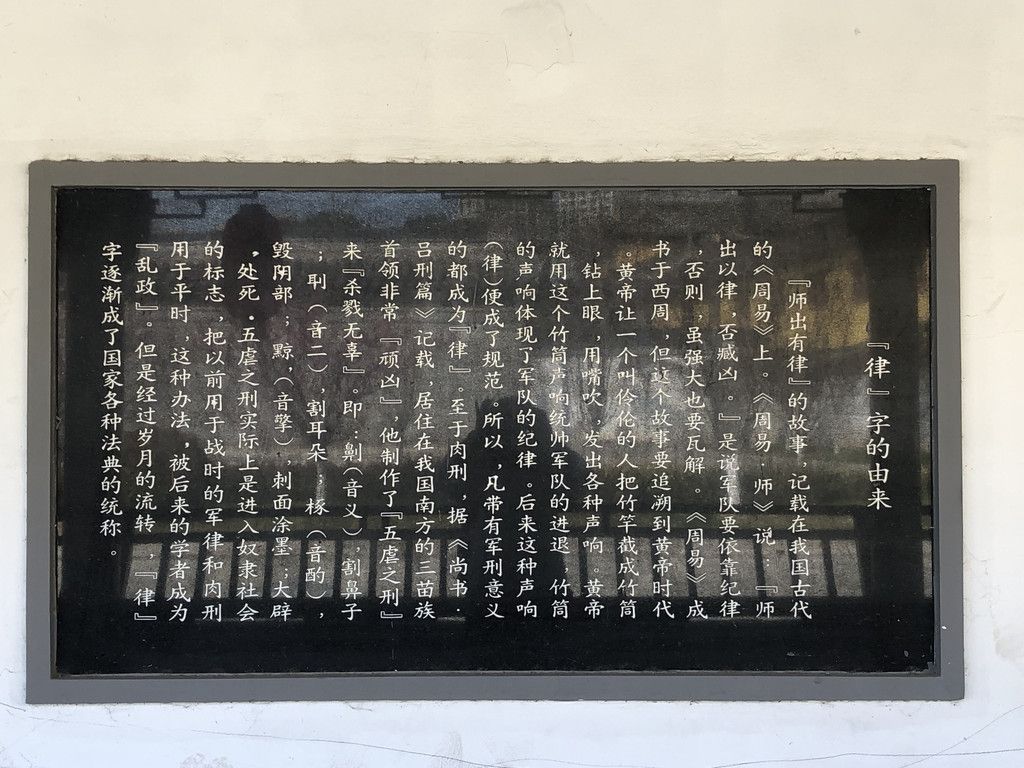 『律』字的由来
『师出有律』的故事，记载在我国古代
的《周易》上。《周易·师》说：『师
出以律，否臧凶。』是说军队要依靠纪律
，否则，虽强大也要瓦解。《周易》成
书于西周，但这个故事要追溯到黄帝时代
。黄帝让一个叫伶伦的人把竹竿截成竹筒
，钻上眼，用嘴吹，发出各种声响。黄帝
就用这个竹筒声响统帅军队的进退，竹筒
的声响体现了军队的纪律。后来这种声响
（律）便成了规范。所以，凡带有军刑意义
的都成为『律』。至于肉刑，据《尚书·
吕刑篇》记载，居住在我国南方的三苗族
首领非常『顽凶』，他制作了『五虐之刑』
来『杀戮无辜』。即：劓（音义），割鼻子
；刵（音二），割耳朵；椓（音酌），
毁阴部；黥，（音擎），刺面涂墨；大辟
，处死。五虐之刑实际上是进入奴隶社会
的标志，把以前用于战时的军律和肉刑
用于平时，这种办法，被后来的学者成为
『乱政』。但是经过岁月的流转，『律』
字逐渐成了国家各种法典的统称。